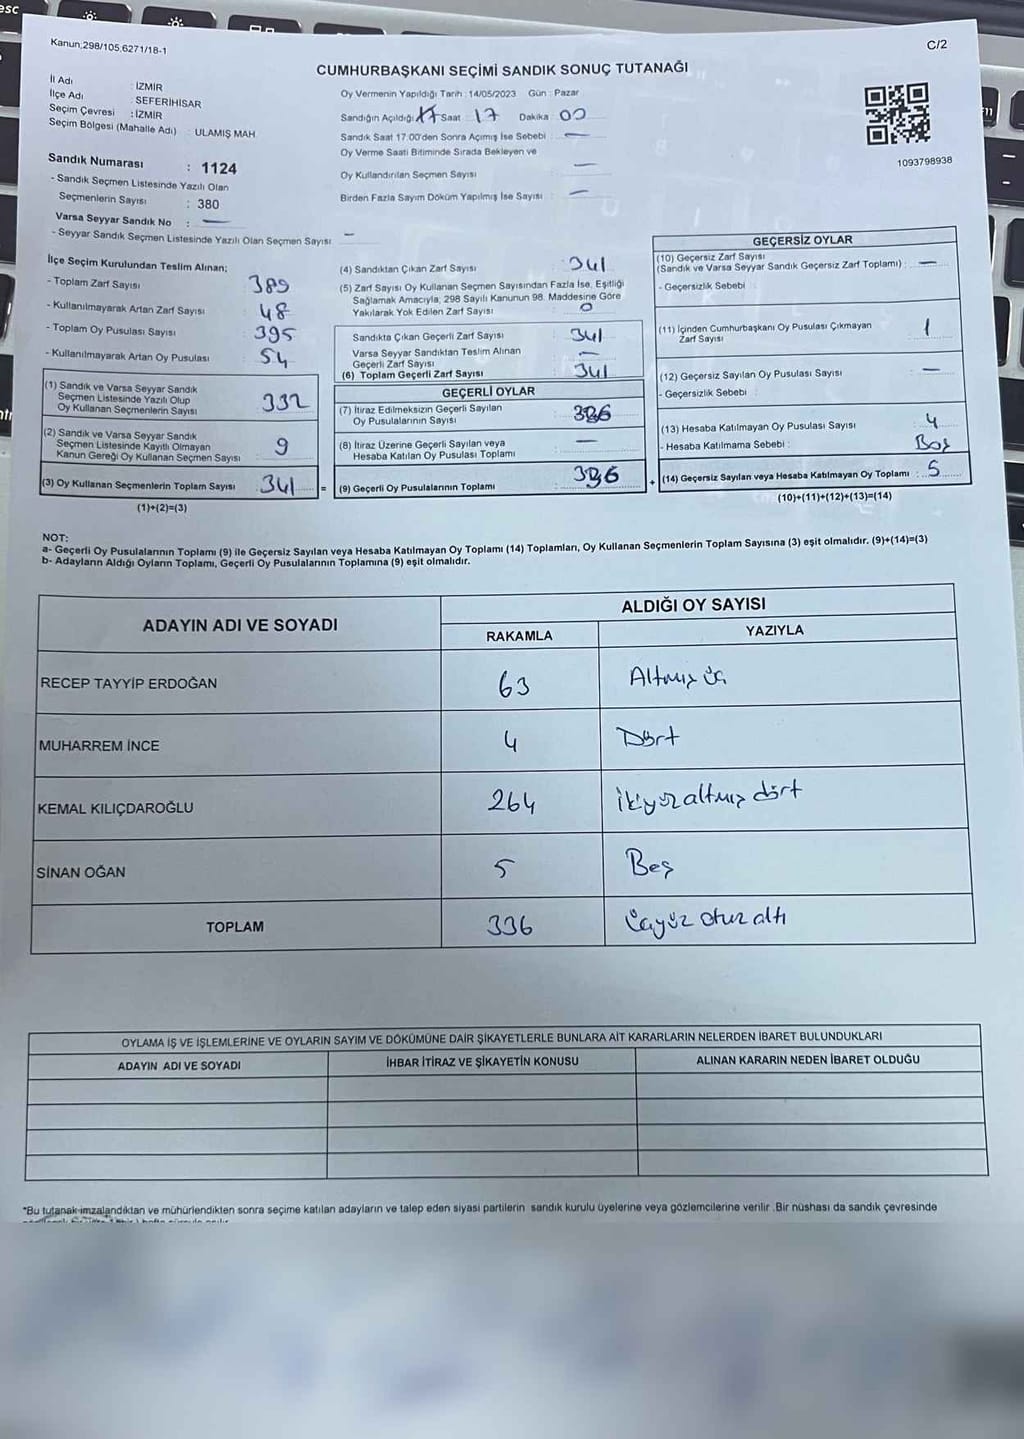 esc
Kanun;298/105,6271/18-1
C/2
CUMHURBAŞKANI SEÇİMİ SANDIK SONUÇ TUTANAĞI
İl Adı : İZMİR
İlçe Adı : SEFERİHİSAR
Seçim Çevresi : İZMİR
Seçim Bölgesi (Mahalle Adı) : ULAMIŞ MAH
Sandık Numarası : 1124
- Sandık Seçmen Listesinde Yazılı Olan
Seçmenlerin Sayısı : 380
Varsa Seyyar Sandık No : —
- Seyyar Sandık Seçmen Listesinde Yazılı Olan Seçmen Sayısı —
Oy Vermenin Yapıldığı Tarih : 14/05/2023 Gün : Pazar
Sandığın Açıldığı Saat : 17 Dakika 00
Sandık Saat 17.00'den Sonra Açımış İse Sebebi : —
Oy Verme Saati Bitiminde Sırada Bekleyen ve
Oy Kullandırılan Seçmen Sayısı —
Birden Fazla Sayım Döküm Yapılmış İse Sayısı : —
1093798938
İlçe Seçim Kurulundan Teslim Alınan;
- Toplam Zarf Sayısı 389
- Kullanılmayarak Artan Zarf Sayısı 48
- Toplam Oy Pusulası Sayısı 395
- Kullanılmayarak Artan Oy Pusulası 54
(1) Sandık ve Varsa Seyyar Sandık
Seçmen Listesinde Yazılı Olup
Oy Kullanan Seçmenlerin Sayısı 332
(2) Sandık ve Varsa Seyyar Sandık
Seçmen Listesinde Kayıtlı Olmayan
Kanun Gereği Oy Kullanan Seçmen Sayısı 9
(3) Oy Kullanan Seçmenlerin Toplam Sayısı 341 =
(1)+(2)=(3)
(4) Sandıktan Çıkan Zarf Sayısı : 341
(5) Zarf Sayısı Oy Kullanan Seçmen Sayısından Fazla İse, Eşitliği
Sağlamak Amacıyla, 298 Sayılı Kanunun 98. Maddesine Göre
Yakılarak Yok Edilen Zarf Sayısı : 0
Sandıkta Çıkan Geçerli Zarf Sayısı : 341
Varsa Seyyar Sandıktan Teslim Alınan
Geçerli Zarf Sayısı : —
(6) Toplam Geçerli Zarf Sayısı 341
GEÇERLİ OYLAR
(7) İtiraz Edilmeksizin Geçerli Sayılan
Oy Pusulalarının Sayısı : 336
(8) İtiraz Üzerine Geçerli Sayılan veya
Hesaba Katılan Oy Pusulası Toplamı : —
(9) Geçerli Oy Pusulalarının Toplamı : 336 +
GEÇERSİZ OYLAR
(10) Geçersiz Zarf Sayısı
(Sandık ve Varsa Seyyar Sandık Geçersiz Zarf Toplamı) : —
- Geçersizlik Sebebi :
(11) İçinden Cumhurbaşkanı Oy Pusulası Çıkmayan
Zarf Sayısı : 1
(12) Geçersiz Sayılan Oy Pusulası Sayısı : —
- Geçersizlik Sebebi :
(13) Hesaba Katılmayan Oy Pusulası Sayısı : 4
- Hesaba Katılmama Sebebi : Boş
(14) Geçersiz Sayılan veya Hesaba Katılmayan Oy Toplamı : 5
(10)+(11)+(12)+(13)=(14)
NOT:
a- Geçerli Oy Pusulalarının Toplamı (9) ile Geçersiz Sayılan veya Hesaba Katılmayan Oy Toplamı (14) Toplamları, Oy Kullanan Seçmenlerin Toplam Sayısına (3) eşit olmalıdır. (9)+(14)=(3)
b- Adayların Aldığı Oyların Toplamı, Geçerli Oy Pusulalarının Toplamına (9) eşit olmalıdır.
ADAYIN ADI VE SOYADI
ALDIĞI OY SAYISI
RAKAMLA YAZIYLA
RECEP TAYYİP ERDOĞAN 63 Altmış üç
MUHARREM İNCE 4 Dört
KEMAL KILIÇDAROĞLU 264 ikiyüzaltmış dört
SİNAN OĞAN 5 Beş
TOPLAM 336 üçyüz otuz altı
OYLAMA İŞ VE İŞLEMLERİNE VE OYLARIN SAYIM VE DÖKÜMÜNE DAİR ŞİKAYETLERLE BUNLARA AİT KARARLARIN NELERDEN İBARET BULUNDUKLARI
ADAYIN ADI VE SOYADI İHBAR İTİRAZ VE ŞİKAYETİN KONUSU ALINAN KARARIN NEDEN İBARET OLDUĞU
*Bu tutanak imzalandıktan ve mühürlendikten sonra seçime katılan adayların ve talep eden siyasi partilerin sandık kurulu üyelerine veya gözlemcilerine verilir .Bir nüshası da sandık çevresinde